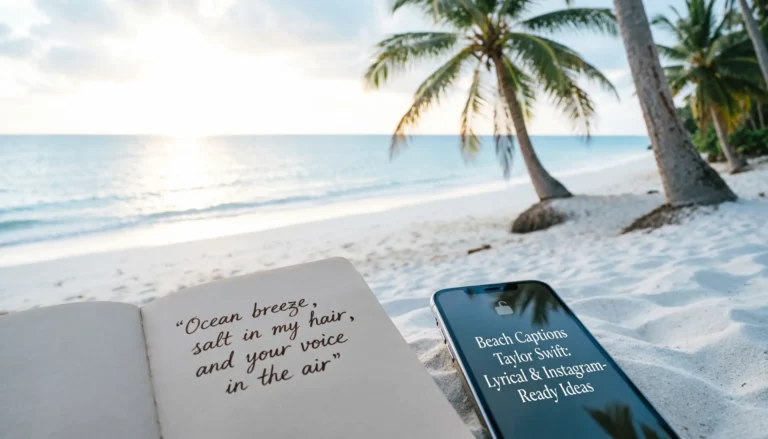 "Ocean breeze,
salt in my hair,
and your voice
in the air"
Beach Captions
Taylor Swift:
Lyrical & Instagram-
Ready Ideas